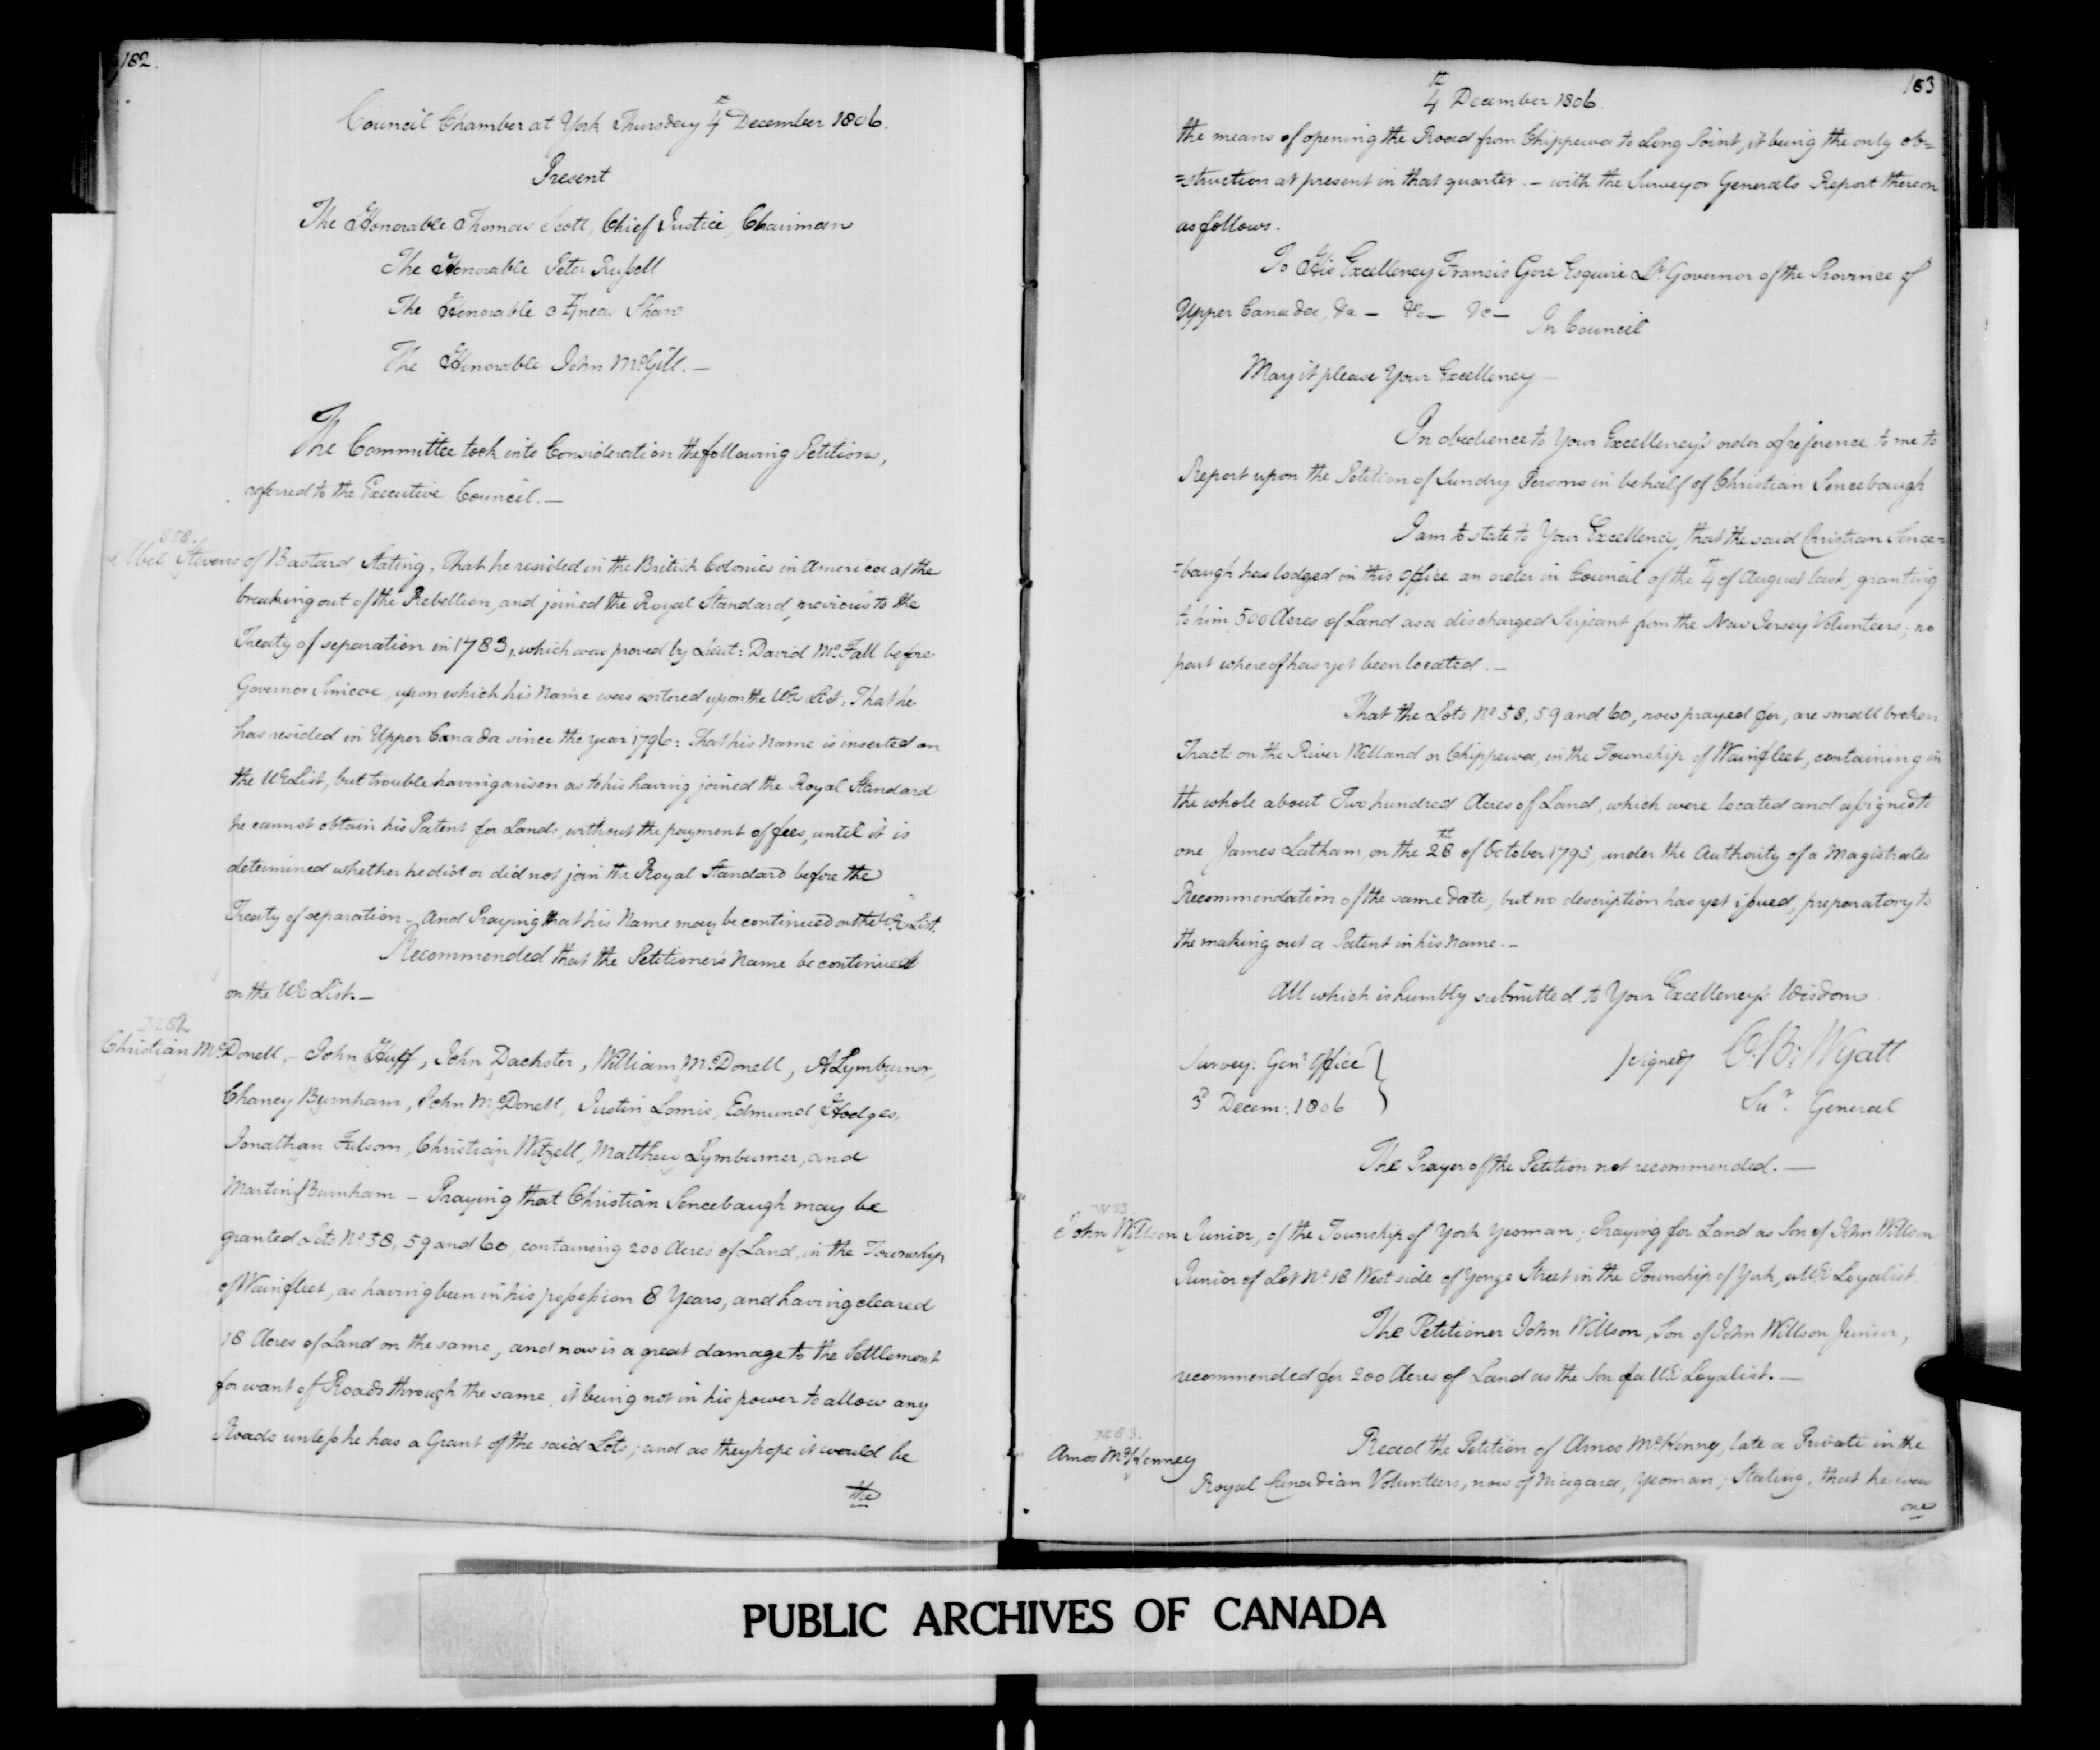 182.
Council Chamber at York Thursday 4th December 1806.
Present
The Honorable Thomas Scott, Chief Justice, Chairman
The Honorable Peter Russell
The Honorable Æneas Shaw
The Honorable John McGill. —
The Committee took into Consideration the following Petitions,
referred to the Executive Council. —
Abel Stevens of Bastard, Stating, That he resided in the British Colonies in America at the
breaking out of the Rebellion, and joined the Royal Standard, previous to the
Treaty of separation in 1783, which was proved by Lieut: David McFall before
Governor Simcoe, upon which his Name was entered upon the UE List: That he
has resided in Upper Canada since the year 1796: That his Name is inserted on
the UE List, but trouble having arisen as to his having joined the Royal Standard
he cannot obtain his Patent for Lands, without the payment of fees, until it is
determined whether he did or did not join the Royal Standard before the
Treaty of separation — And Praying that his Name may be continued on the UE List.
Recommended that the Petitioner's Name be continued
on the UE List. —
Christian McDonell, — John Huff, John Dachster, William McDonell, A Lymburner,
Chaney Burnham, John McDonell, Justin Lomis, Edmund Hodges,
Jonathan Fulsom, Christian Witzell, Matthew Lymburner, and
Martin Burnham — Praying that Christian Sencebaugh may be
granted Lots No 58, 59 and 60, containing 200 Acres of Land, in the Township
of Wainfleet, as having been in his possession 8 Years, and having cleared
18 Acres of Land on the same, and now is a great damage to the Settlement
for want of Roads through the same, it being not in his power to allow any
Roads unless he has a Grant of the said Lots; and as they hope it would be
the
183
4th December 1806.
the means of opening the Road from Chippewa to Long Point, it being the only ob=
=struction at present in that quarter. — with the Surveyor Generals Report thereon
as follows.
To His Excellency Francis Gore Esquire Lt Governor of the Province of
Upper Canada, &c — &c — &c —
In Council
May it please Your Excellency —
In obedience to Your Excellency's order of reference to me to
Report upon the Petition of Sundry Persons in behalf of Christian Sencebaugh
I am to state to Your Excellency, that the said Christian Sence=
=baugh has lodged in this Office an order in Council of the 4th of August last, granting
to him 500 Acres of Land as a discharged Serjeant from the New Jersey Volunteers; no
part whereof has yet been located. —
That the Lots No 58, 59 and 60, now prayed for, are small broken
Tracts on the River Welland or Chippewa, in the Township of Wainfleet, containing in
the whole about Two hundred Acres of Land, which were located and assigned to
one James Latham, on the 28th of October 1795, under the Authority of a Magistrates
Recommendation of the same date; but no description has yet issued, preparatory to
the making out a Patent in his Name. —
All which is humbly submitted to Your Excellency's Wisdom
Survey: Genl Office } /signed/ C. B: Wyatt
3d Decem: 1806 Sur. General
The Prayer of the Petition not recommended. —
W 33.
John Willson Junior, of the Township of York Yeoman; Praying for Land as Son of John Willson
Junior of Lot No 18 West side of Yonge Street in the Township of York, a UE Loyalist.
The Petitioner John Willson, Son of John Willson Junior,
recommended for 200 Acres of Land as the Son of a UE Loyalist. —
M 83.
Amos McKenney Read the Petition of Amos McKenney, late a Private in the
Royal Canadian Volunteers, now of Niagara, Yeoman; Stating, that he was
one
PUBLIC ARCHIVES OF CANADA